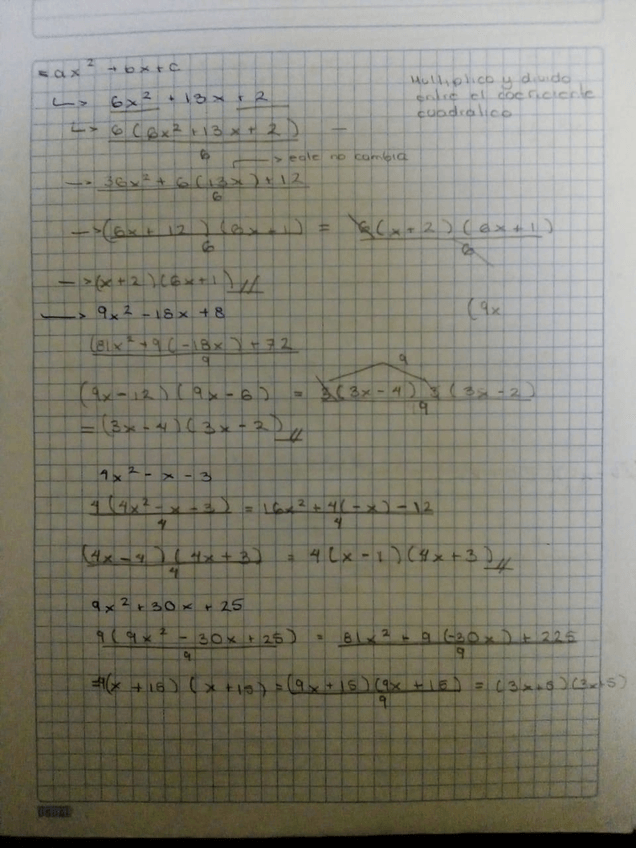 = ax² + bx + c
Multiplico y divido
entre el coeficiente
cuadrático
↳ 6x² + 13x + 2
↳ 6(6x² + 13x + 2) —
6
→ este no cambia
→ 36x² + 6(13x) + 12
6
→ (6x + 12)(6x + 1) = 6(x + 2)(6x + 1)
6 6
→ (x + 2)(6x + 1) //
→ 9x² - 18x + 8
(9x
(81x² + 9(-18x) + 72
9
9
(9x - 12)(9x - 6) = 3(3x - 4) 3(3x - 2)
9
= (3x - 4)(3x - 2) //
4x² - x - 3
4(4x² - x - 3) = 16x² + 4(-x) - 12
4 4
(4x - 4)(4x + 3) = 4(x - 1)(4x + 3) //
4
9x² + 30x + 25
9(9x² - 30x + 25) = 81x² + 9(-30x) + 225
9 9
(x + 15)(x + 15) = (9x + 15)(9x + 15) = (3x + 5)(3x + 5)
9